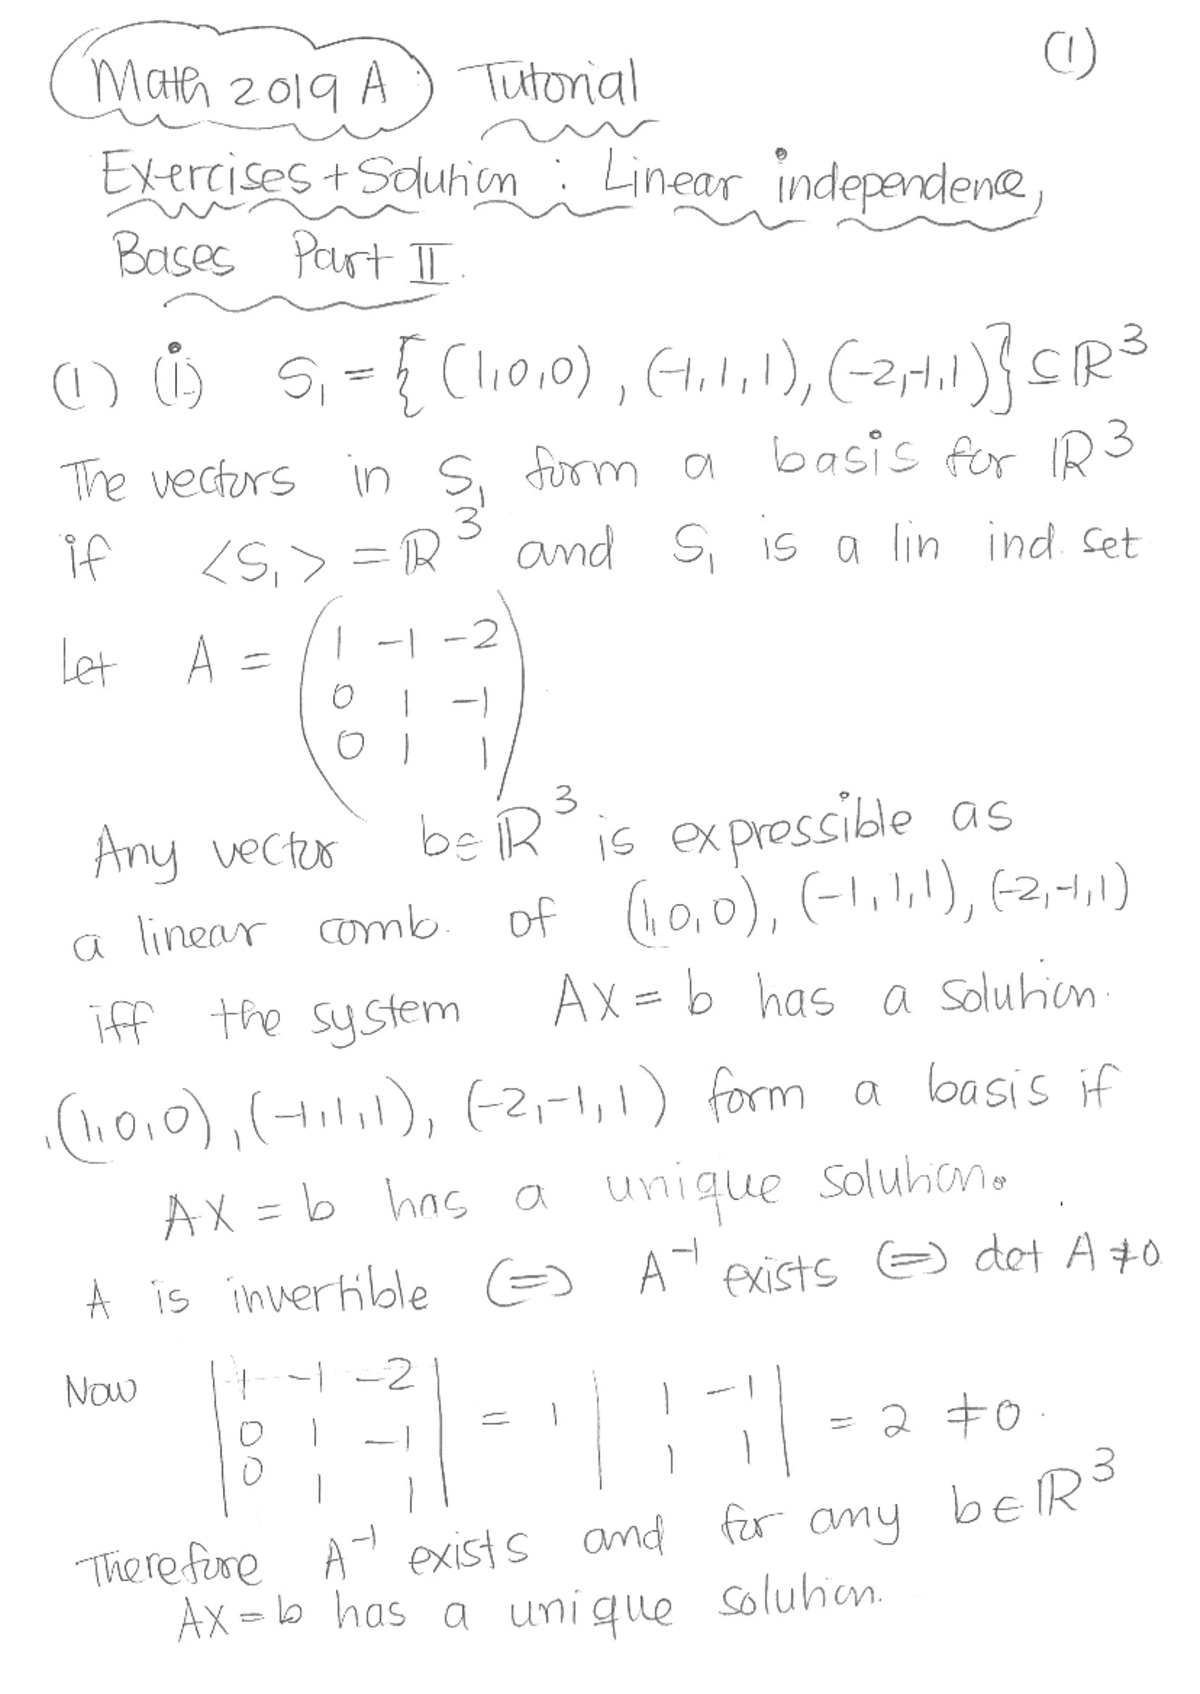 (1)
Math 2019 A Tutorial
Exercises + Solution : Linear independence,
Bases Part II.
(1) (i) S₁ = { (1,0,0) , (-1,1,1), (-2,-1,1)} ⊆ ℝ³
The vectors in S₁ form a basis for ℝ³
if <S₁> = ℝ³ and S₁ is a lin ind. set
Let A = ( 1 -1 -2
0 1 -1
0 1 1 )
Any vector b∈ℝ³ is expressible as
a linear comb. of (1,0,0), (-1,1,1), (-2,-1,1)
iff the system AX = b has a solution.
(1,0,0), (-1,1,1), (-2,-1,1) form a basis if
AX = b has a unique solution.
A is invertible ⇔ A⁻¹ exists ⇔ det A ≠ 0.
Now | 1 -1 -2 |
| 0 1 -1 | = 1 | 1 -1 | = 2 ≠ 0.
| 0 1 1 | | 1 1 |
Therefore A⁻¹ exists and for any b∈ℝ³
AX = b has a unique solution.